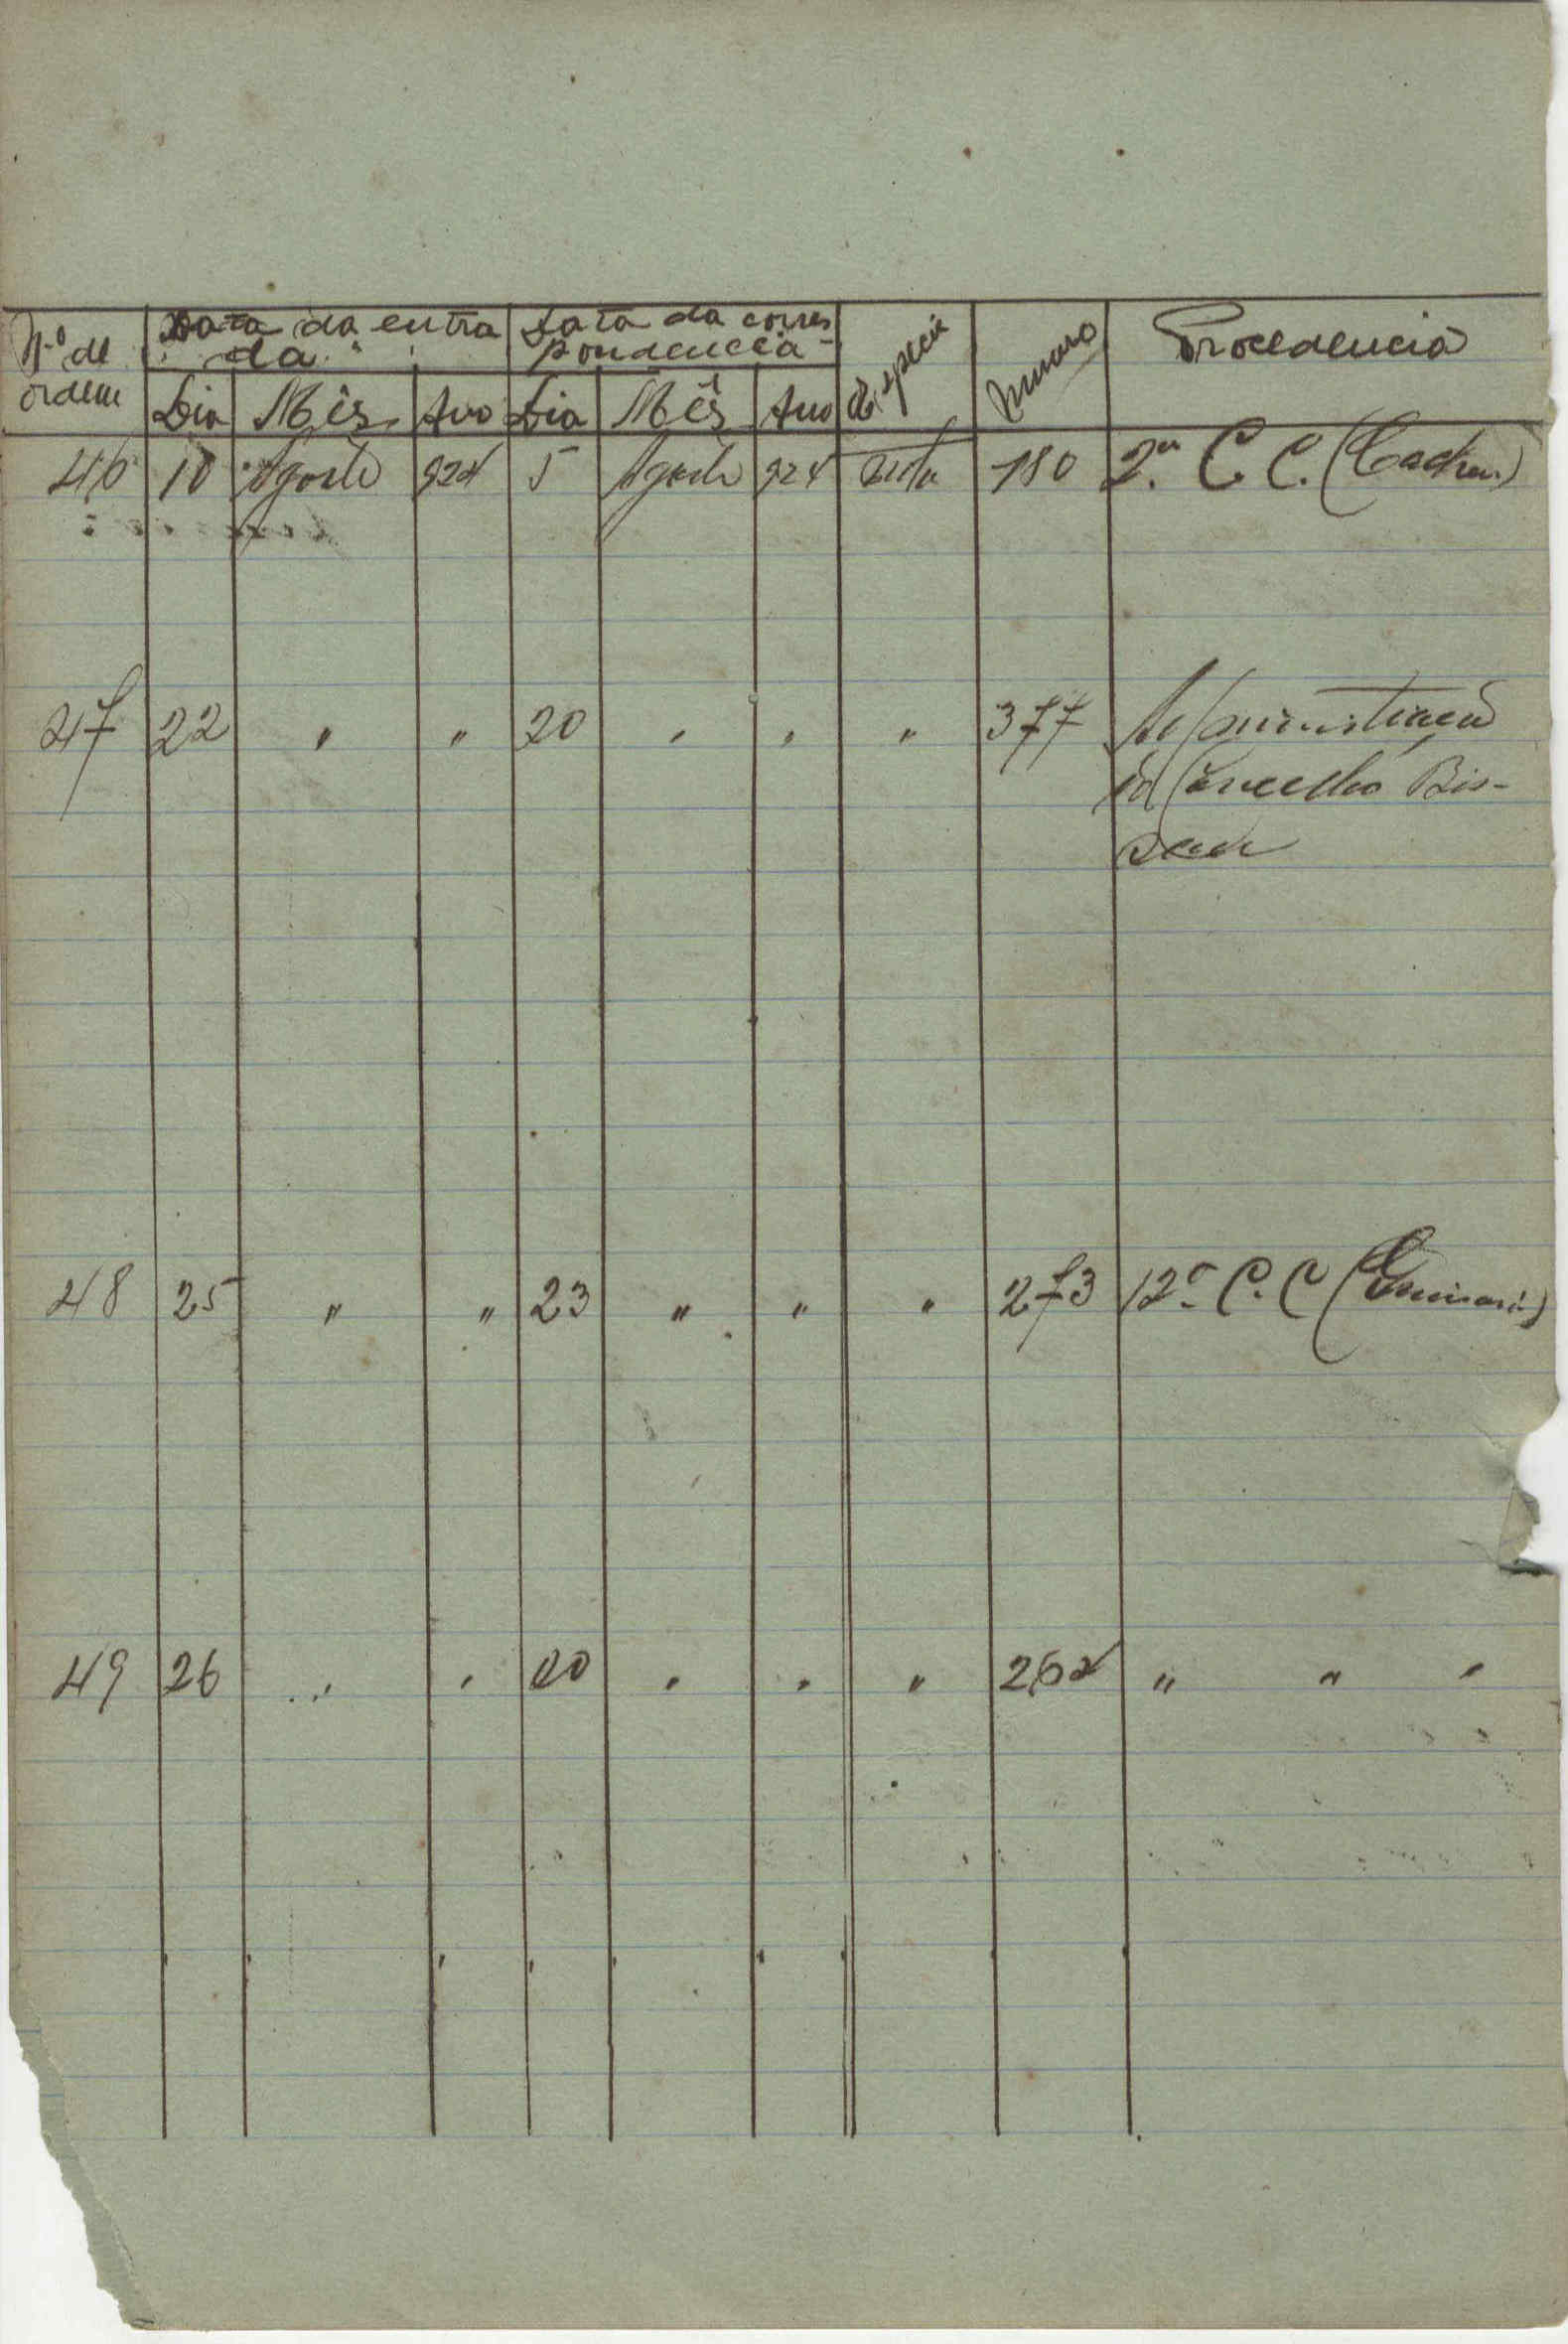 Nº de ordem | Data da entrada | Data da correspondencia | Especie | Numero | Procedencia
Dia | Mês | Ano | Dia | Mês | Ano
46 | 10 | Agosto | 924 | 5 | Agosto | 924 | Nota | 180 | 2ª C. C. (Cacheu)
47 | 22 | " | " | 20 | " | " | " | 377 | Administração
do Concelho Bis-
sau
48 | 25 | " | " | 23 | " | " | " | 273 | 12ª C. C
49 | 26 | " | " | 20 | " | " | " | 262 | " " "